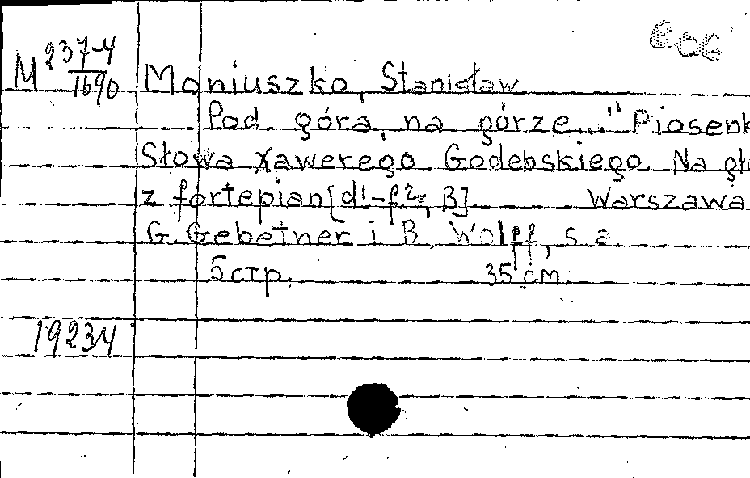 M 237-4
1690
Moniuszko, Stanisław
Pod góra, na górze..." Piosenk
Słowa Xawerego Godebskiego. Na gło
z fortepian [d¹-f², B]. Warszawa
G. Gebetner i R. Wolff, s. a.
5 стр. 35 см.
19234